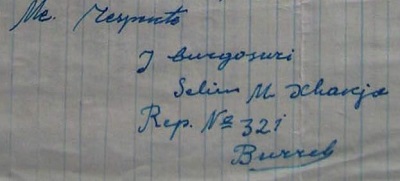 Me respekte
I burgosuri
Selim M Xhanja
Rep. № 321
Burreb